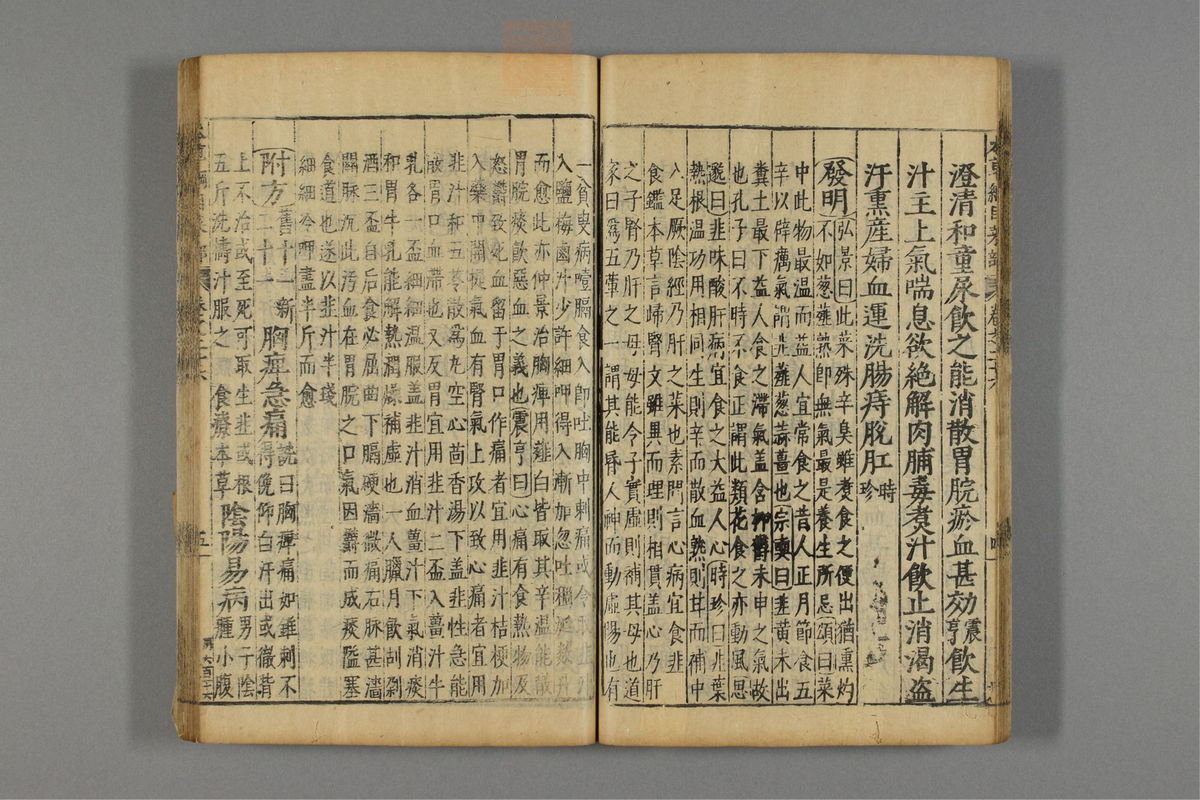 澄清和童尿飲之能消散胃脘瘀血甚効震亨飲生
汁王上氣喘息欲絶解肉脯毒煮汁飲止消渴盜
汗熏産婦血運洗腸痔脫肛時珍
發明弘景曰此菜殊辛臭雖煑食之便出猶熏灼
不如葱薤熟即無氣最是養生所忌頌曰菜
中此物最温而益人宜常食之昔人正月節食五
辛以辟癘氣謂韭薤葱蒜薑也宗奭曰韭黄未出
糞土最下益人食之滯氣盖含抑鬱未申之氣故
也孔子曰不時不食正謂此類花食之亦動風思
邈曰韭味酸肝病宜食之大益人心時珍曰韭葉
熱根温功用相同生則辛而散血熟則甘而補中
入足厥陰經乃肝之菜也素問言心病宜食韭
食鑑本草言歸腎文雖異而理則相貫盖心乃肝
之子腎乃肝之母母能令子實虛則補其母也道
家曰爲五葷之一謂其能昏人神而動虛陽也有
一貧叟病噎膈食入卽吐胸中刺痛或令取韭汁
入鹽梅鹵汁少許細呷得入漸加忽吐稠涎數升
而愈此亦仲景治胸痺用薤白皆取其辛温能散
胃脘痰飲惡血之義也震亨曰心痛有食熱物及
怒鬱致死血留于胃口作痛者宜用韭汁桔梗加
入藥中開提氣血有腎氣上攻以致心痛者宜用
韭汁和五苓散爲丸空心茴香湯下盖韭性急能
散胃口血滯也又反胃宜用韭汁二盃入薑汁牛
乳各一盃細細温服盖韭汁消血薑汁下氣消痰
和胃牛乳能解熱潤燥補虛也一人臘月飲刮剁
酒三盃自后食必屈曲下膈硬濇微痛右脉甚濇
關脉沉此汚血在胃脘之口氣因鬱而成痰隘塞
食道也遂以韭汁半琖
細細冷呷盡半斤而愈
附方舊十一新二十一胸痺急痛詵曰胸痺痛如錐刺不
得俛仰白汗出或徹背
上不治或至死可取生韭或根
五斤洗擣汁服之食療本草陰陽易病男子陰
腫小腹